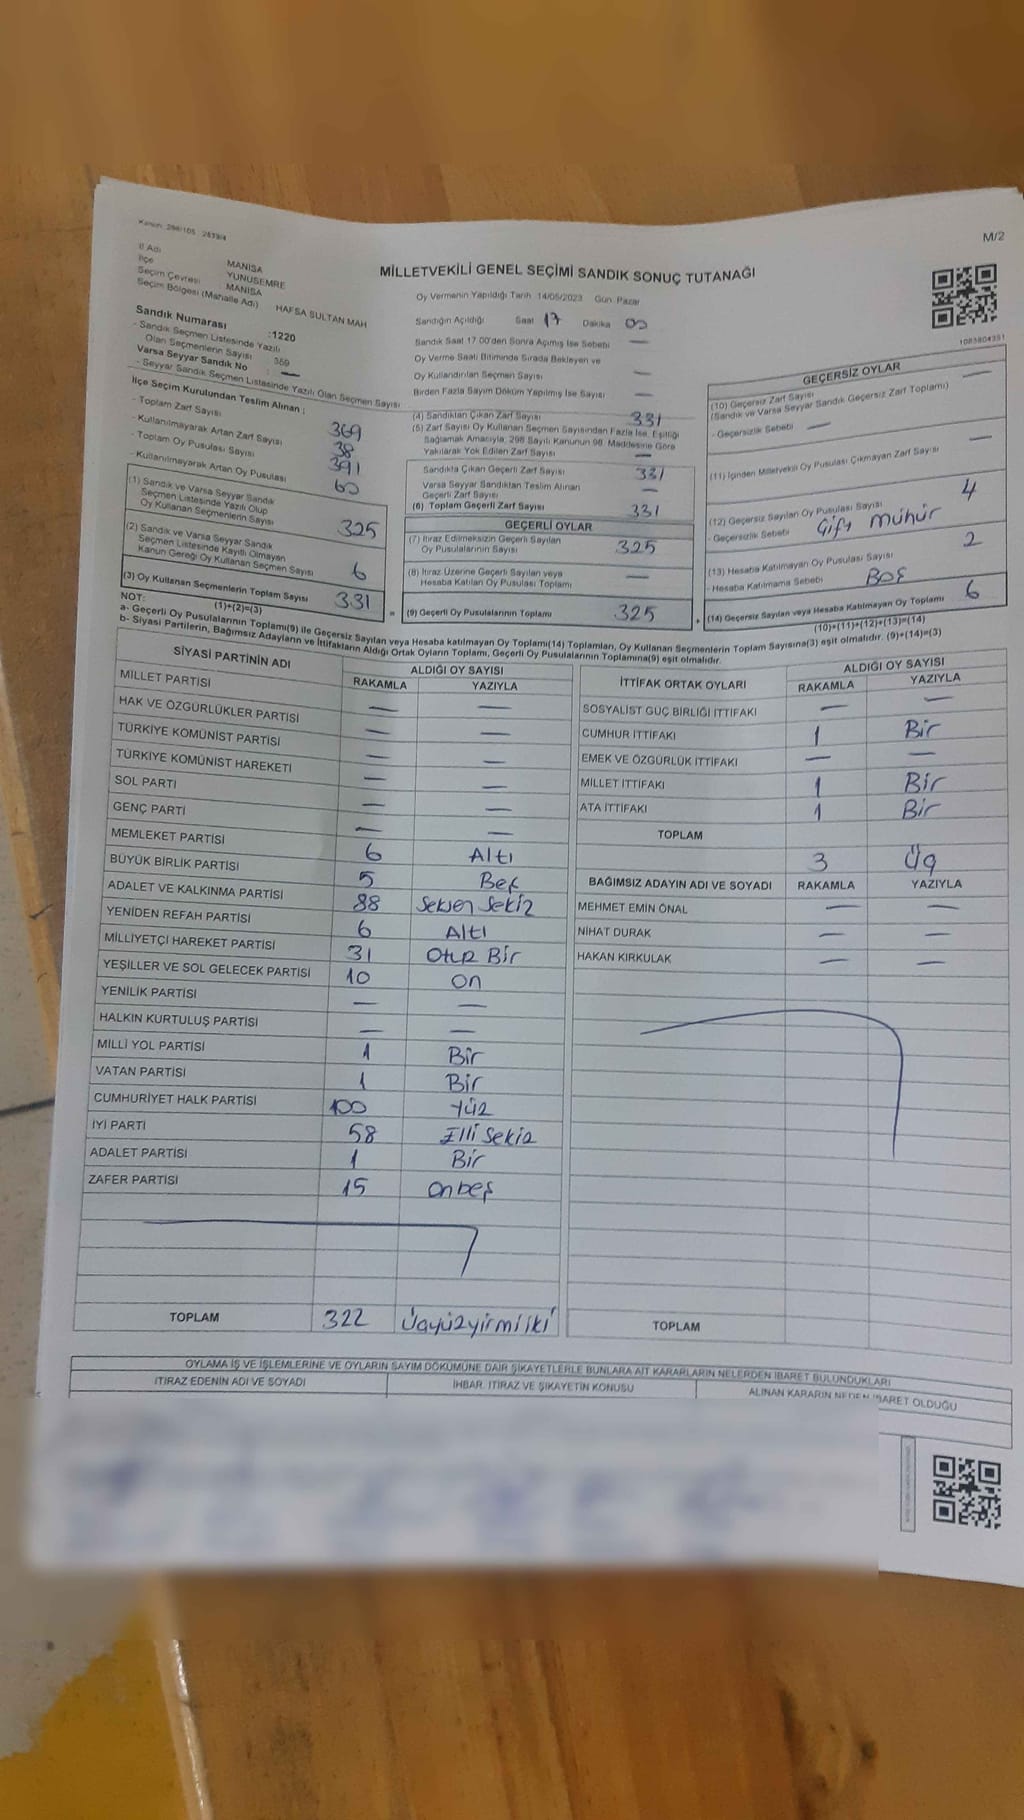 Kanun: 298/105 2839/4
M/2
İl Adı MANİSA
İlçe YUNUSEMRE
Seçim Çevresi MANİSA
Seçim Bölgesi (Mahalle Adı) HAFSA SULTAN MAH
MİLLETVEKİLİ GENEL SEÇİMİ SANDIK SONUÇ TUTANAĞI
Sandık Numarası :1220
- Sandık Seçmen Listesinde Yazılı
Olan Seçmenlerin Sayısı 369
Varsa Seyyar Sandık No : —
- Seyyar Sandık Seçmen Listesinde Yazılı Olan Seçmen Sayısı
Oy Vermenin Yapıldığı Tarih 14/05/2023 Gün: Pazar
Sandığın Açıldığı Saat 17 Dakika 00
Sandık Saat 17.00'den Sonra Açımış İse Sebebi —
Oy Verme Saati Bitiminde Sırada Bekleyen ve
Oy Kullandırılan Seçmen Sayısı —
Birden Fazla Sayım Döküm Yapılmış İse Sayısı —
1083804351
İlçe Seçim Kurulundan Teslim Alınan :
- Toplam Zarf Sayısı 369
- Kullanılmayarak Artan Zarf Sayısı 38
- Toplam Oy Pusulası Sayısı 391
- Kullanılmayarak Artan Oy Pusulası 60
(1) Sandık ve Varsa Seyyar Sandık
Seçmen Listesinde Yazılı Olup
Oy Kullanan Seçmenlerin Sayısı 325
(2) Sandık ve Varsa Seyyar Sandık
Seçmen Listesinde Kayıtlı Olmayan
Kanun Gereği Oy Kullanan Seçmen Sayısı 6
(3) Oy Kullanan Seçmenlerin Toplam Sayısı 331
(1)+(2)=(3)
(4) Sandıktan Çıkan Zarf Sayısı 331
(5) Zarf Sayısı Oy Kullanan Seçmen Sayısından Fazla İse, Eşitliği
Sağlamak Amacıyla, 298 Sayılı Kanunun 98. Maddesine Göre
Yakılarak Yok Edilen Zarf Sayısı —
Sandıkta Çıkan Geçerli Zarf Sayısı 331
Varsa Seyyar Sandıktan Teslim Alınan
Geçerli Zarf Sayısı —
(6) Toplam Geçerli Zarf Sayısı 331
GEÇERLİ OYLAR
(7) İtiraz Edilmeksizin Geçerli Sayılan
Oy Pusulalarının Sayısı 325
(8) İtiraz Üzerine Geçerli Sayılan veya
Hesaba Katılan Oy Pusulası Toplamı —
= (9) Geçerli Oy Pusulalarının Toplamı 325 +
GEÇERSİZ OYLAR
(10) Geçersiz Zarf Sayısı —
(Sandık ve Varsa Seyyar Sandık Geçersiz Zarf Toplamı)
- Geçersizlik Sebebi —
(11) İçinden Milletvekili Oy Pusulası Çıkmayan Zarf Sayısı —
(12) Geçersiz Sayılan Oy Pusulası Sayısı 4
- Geçersizlik Sebebi Çift Mühür
(13) Hesaba Katılmayan Oy Pusulası Sayısı 2
- Hesaba Katılmama Sebebi BOŞ
(14) Geçersiz Sayılan veya Hesaba Katılmayan Oy Toplamı 6
(10)+(11)+(12)+(13)=(14)
NOT:
a- Geçerli Oy Pusulalarının Toplamı(9) ile Geçersiz Sayılan veya Hesaba katılmayan Oy Toplamı(14) Toplamları, Oy Kullanan Seçmenlerin Toplam Sayısına(3) eşit olmalıdır. (9)+(14)=(3)
b- Siyasi Partilerin, Bağımsız Adayların ve İttifakların Aldığı Ortak Oyların Toplamı, Geçerli Oy Pusulalarının Toplamına(9) eşit olmalıdır.
SİYASİ PARTİNİN ADI ALDIĞI OY SAYISI
RAKAMLA YAZIYLA
MİLLET PARTİSİ — —
HAK VE ÖZGÜRLÜKLER PARTİSİ — —
TÜRKİYE KOMÜNİST PARTİSİ — —
TÜRKİYE KOMÜNİST HAREKETİ — —
SOL PARTİ — —
GENÇ PARTİ — —
MEMLEKET PARTİSİ 6 Altı
BÜYÜK BİRLİK PARTİSİ 5 Beş
ADALET VE KALKINMA PARTİSİ 88 Seksen Sekiz
YENİDEN REFAH PARTİSİ 6 Altı
MİLLİYETÇİ HAREKET PARTİSİ 31 Otuz Bir
YEŞİLLER VE SOL GELECEK PARTİSİ 10 On
YENİLİK PARTİSİ — —
HALKIN KURTULUŞ PARTİSİ — —
MİLLİ YOL PARTİSİ 1 Bir
VATAN PARTİSİ 1 Bir
CUMHURİYET HALK PARTİSİ 100 Yüz
İYİ PARTİ 58 Elli Sekiz
ADALET PARTİSİ 1 Bir
ZAFER PARTİSİ 15 Onbeş
TOPLAM 322 Üçyüzyirmiiki
İTTİFAK ORTAK OYLARI ALDIĞI OY SAYISI
RAKAMLA YAZIYLA
SOSYALİST GÜÇ BİRLİĞİ İTTİFAKI — —
CUMHUR İTTİFAKI 1 Bir
EMEK VE ÖZGÜRLÜK İTTİFAKI — —
MİLLET İTTİFAKI 1 Bir
ATA İTTİFAKI 1 Bir
TOPLAM 3 Üç
BAĞIMSIZ ADAYIN ADI VE SOYADI RAKAMLA YAZIYLA
MEHMET EMİN ÖNAL — —
NİHAT DURAK — —
HAKAN KIRKULAK — —
TOPLAM
OYLAMA İŞ VE İŞLEMLERİNE VE OYLARIN SAYIM DÖKÜMÜNE DAİR ŞİKAYETLERLE BUNLARA AİT KARARLARIN NELERDEN İBARET BULUNDUKLARI
İTİRAZ EDENİN ADI VE SOYADI
İHBAR, İTİRAZ VE ŞİKAYETİN KONUSU
ALINAN KARARIN NEDEN İBARET OLDUĞU